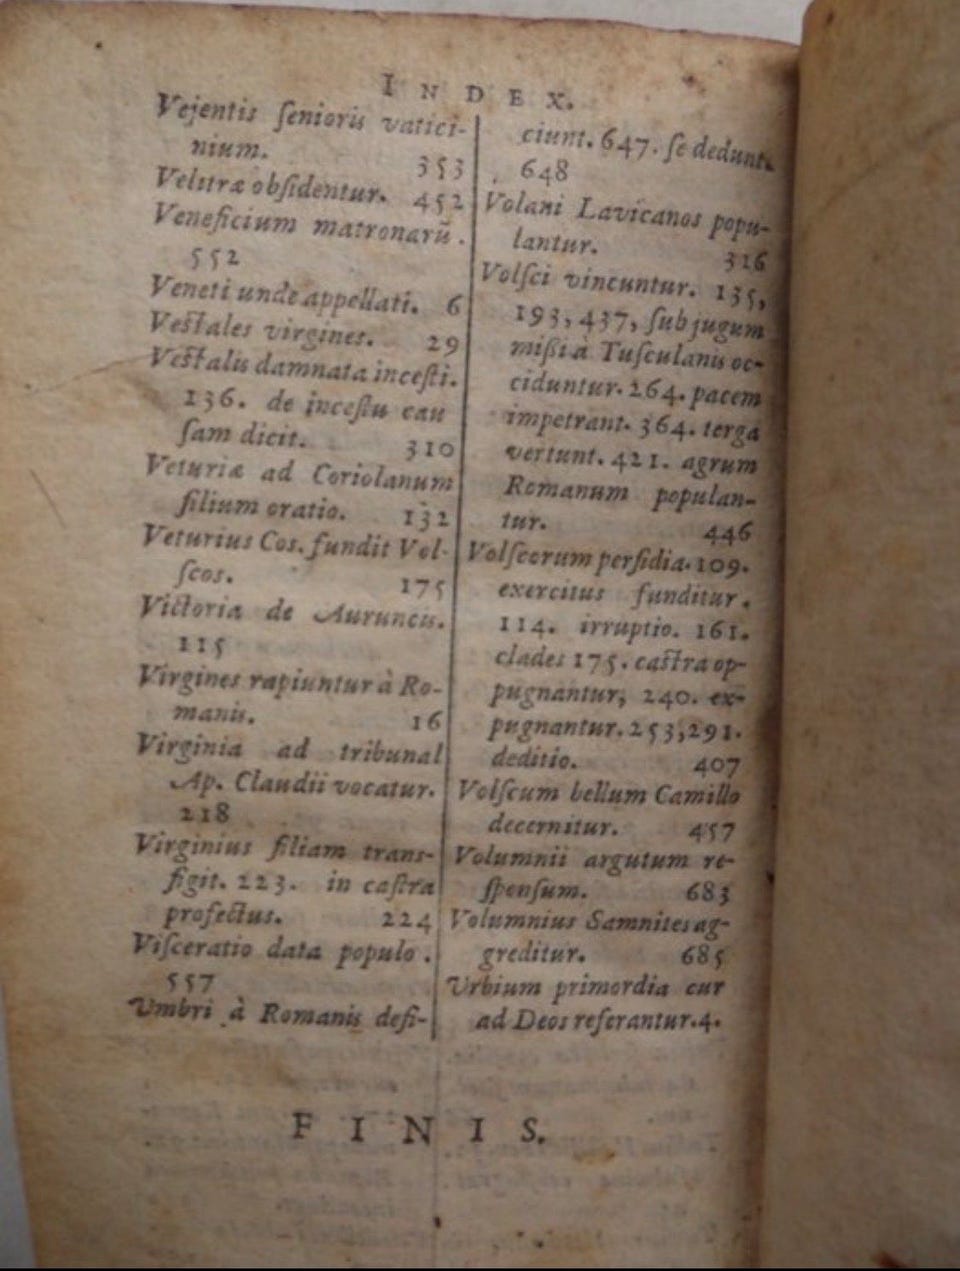 INDEX.
Vejentis senioris vatici-
nium. 353
Velitræ obsidentur. 452
Veneficium matronarū.
552
Veneti unde appellati. 6
Vestales virgines. 29
Vestalis damnata incesti.
136. de incestu cau
sam dicit. 310
Veturiæ ad Coriolanum
filium oratio. 132
Veturius Cos. fundit Vol-
scos. 175
Victoria de Auruncis.
115
Virgines rapiuntur à Ro-
manis. 16
Virginia ad tribunal
Ap. Claudii vocatur.
218
Virginius filiam trans-
figit. 223. in castra
profectus. 224
Visceratio data populo.
557
Umbri à Romanis defi-
ciunt. 647. se dedunt.
648
Volani Lavicanos popu-
lantur. 316
Volsci vincuntur. 135,
193, 437, sub jugum
missi à Tusculanis oc-
ciduntur. 264. pacem
impetrant. 364. terga
vertunt. 421. agrum
Romanum populan-
tur. 446
Volscorum perfidia. 109.
exercitus funditur.
114. irruptio. 161.
clades 175. castra op-
pugnantur, 240. ex-
pugnantur. 253, 291.
deditio. 407
Volscum bellum Camillo
decernitur. 457
Volumnii argutum re-
sponsum. 683
Volumnius Samnites ag-
greditur. 685
Urbium primordia cur
ad Deos referantur. 4.
FINIS.